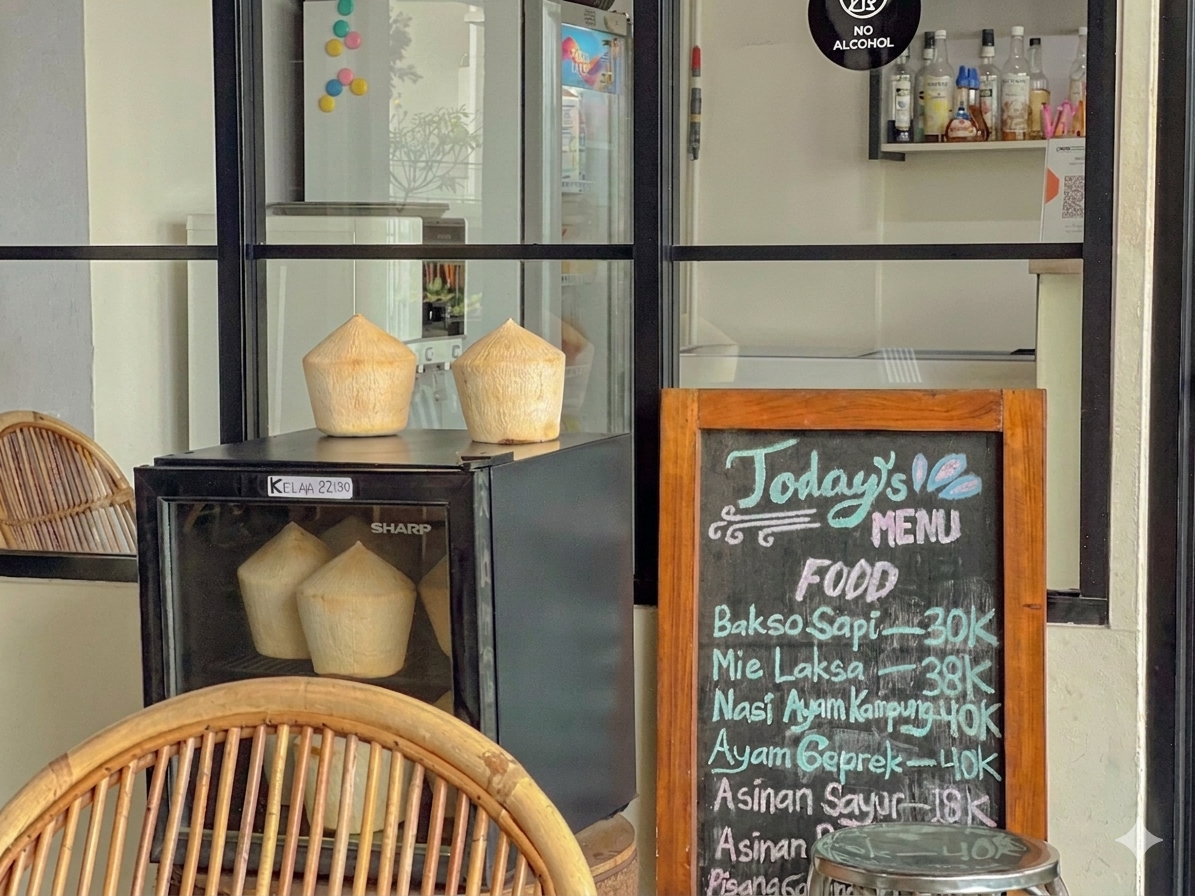 NO
ALCOHOL
KELAPA 22|30
SHARP
Today's
MENU
FOOD
Bakso Sapi — 30K
Mie Laksa — 38K
Nasi Ayam Kampung - 40K
Ayam Geprek — 40K
Asinan Sayur — 18K
Asinan